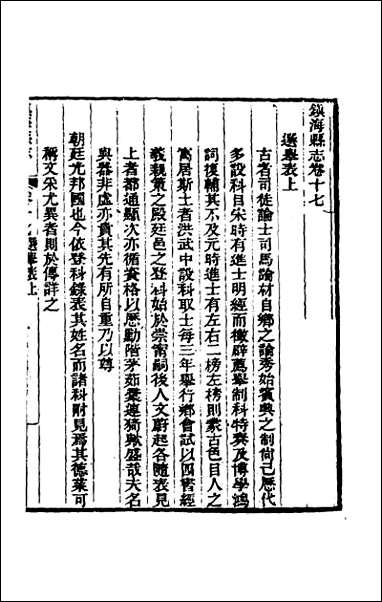 鎮海縣志卷十七
選舉表上
古者司徒論士司馬論材自鄉之論秀始賓興之制尚已歷代
多設科目宋時有進士明經而徵辟薦舉制科特奏及博學鴻
詞復輔其不及元時進士有左右二榜左榜則蒙古色目人之
寓居斯土者洪武中設科取士每三年舉行鄉會試以四書經
義親策之殿廷邑之登科始於崇甯嗣後人文蔚起各隨表見
上者都通顯次亦循資格以歷勳階茅茹彙連猗歟盛哉夫名
與器非虛亦貴其先有所自重乃以尊
朝廷光邦國也今依登科錄表其姓名而諸科附見焉其德業可
稱文采尤異者則於傳詳之
選舉表上